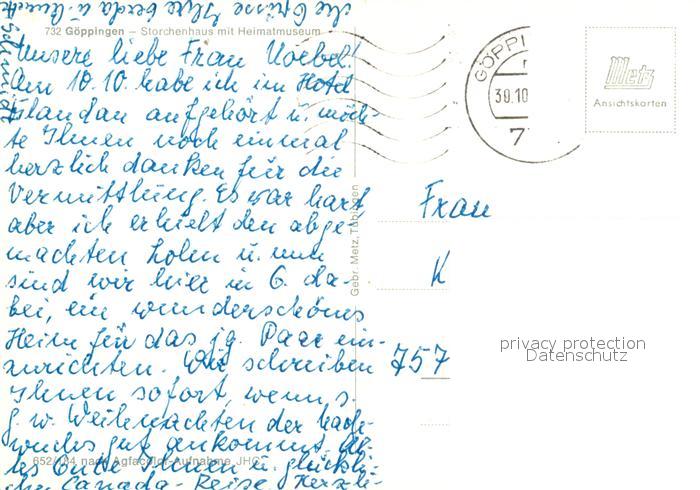 732 Göppingen — Storchenhaus mit Heimatmuseum
Unsere liebe Frau
Am 10.10. habe ich im Hotel
aufgehört u. möch-
te Ihnen noch einmal
herzlich danken für die
Vermittlung. Es war hart
aber ich erhielt den abge-
machten Lohn u. nun
sind wir hier in G. da-
bei, ein wunderschönes
Heim für das jg. Paar ein-
zurichten. Wir schreiben
Ihnen sofort, wenn, s.
g. w. Weihnachten der Nach-
wuchs gut ankommt.
Ihnen u. glückli-
che Canada-Reise. Herzli-
che Grüsse Ihre Gerda u.
Schmidt
652/ nach Agfacolor-Aufnahme JHG
Gebr. Metz, Tübingen
GÖPPI
30.10
7
Metz
Ansichtskarten
Frau
K
757
privacy protection
Datenschutz